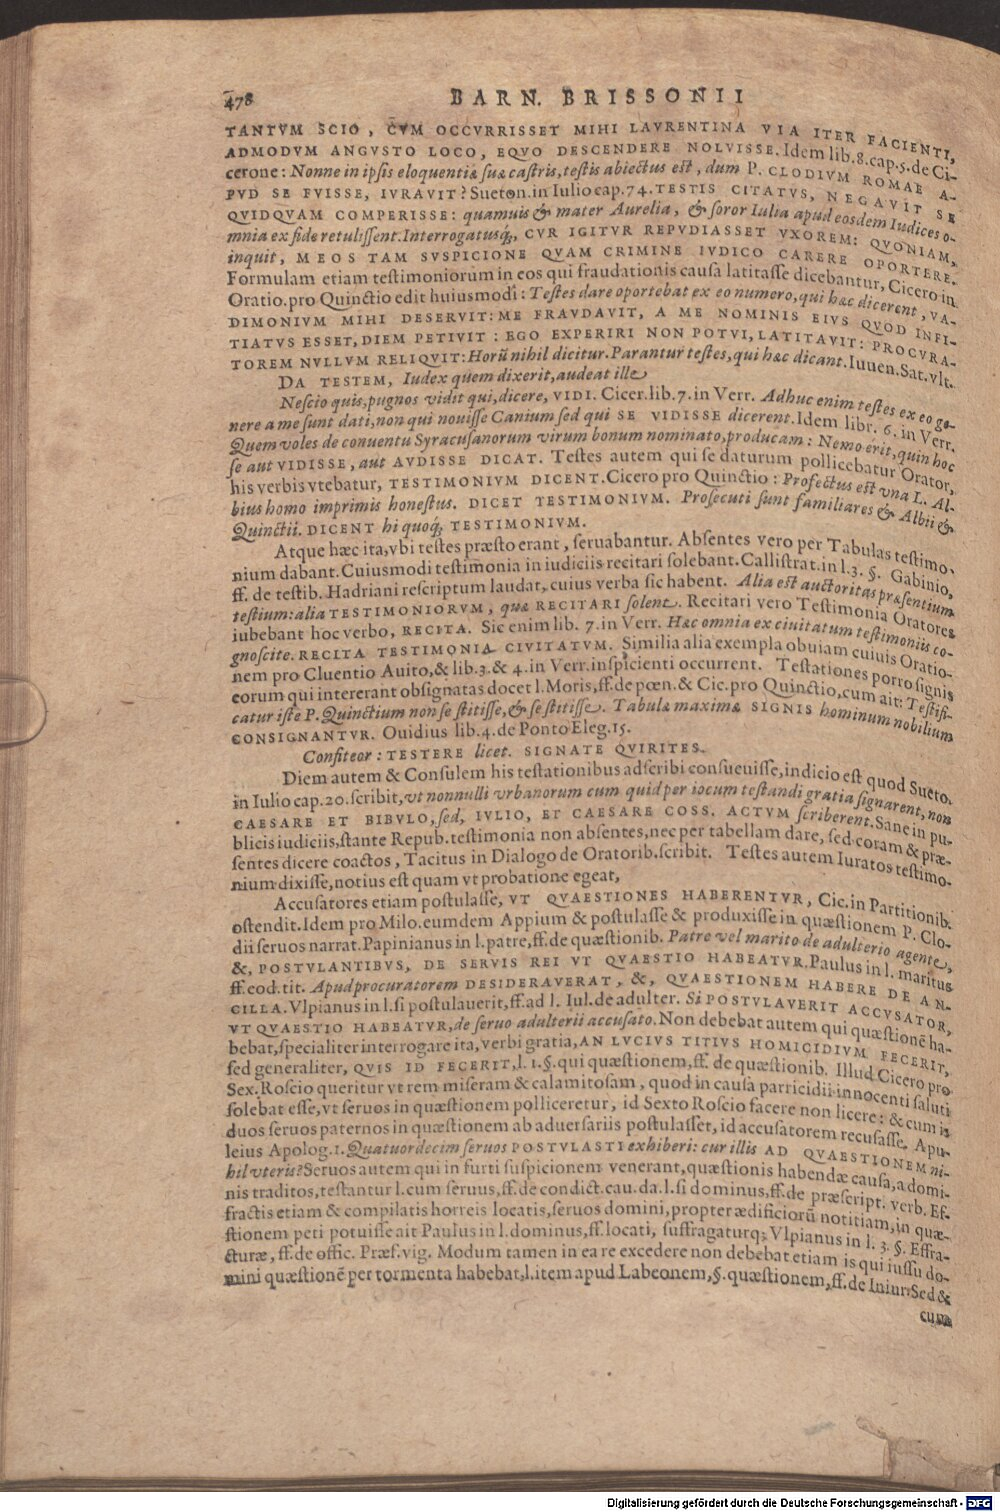 478 BARN. BRISSONII
TANTVM SCIO, CVM OCCVRRISSET MIHI LAVRENTINA VIA ITER FACIENTI,
ADMODVM ANGVSTO LOCO, EQVO DESCENDERE NOLVISSE. Idem lib.8.cap.5.de Ci-
cerone: Nonne in ipsis eloquentiæ suæ castris, testis abiectus est, dum P. CLODIVM ROMAE A-
PVD SE FVISSE, IVRAVIT? Sueton. in Iulio cap. 74. TESTIS CITATVS, NEGAVIT SE
QVIDQVAM COMPERISSE: quamuis & mater Aurelia, & soror Iulia apud eosdem Iudices o-
mnia ex fide retulissent. Interrogatusq́;, CVR IGITVR REPVDIASSET VXOREM: QVONIAM,
inquit, MEOS TAM SVSPICIONE QVAM CRIMINE IVDICO CARERE OPORTERE.
Formulam etiam testimoniorum in eos qui fraudationis causa latitasse dicebantur, Cicero in
Oratio. pro Quinctio edit huiusmodi: Testes dare oportebat ex eo numero, qui hæc dicerent, VA-
DIMONIVM MIHI DESERVIT: ME FRAVDAVIT, A ME NOMINIS EIVS QVOD INFI-
TIATVS ESSET, DIEM PETIVIT: EGO EXPERIRI NON POTVI, LATITAVIT: PROCVRA-
TOREM NVLLVM RELIQVIT: Horũ nihil dicitur. Parantur testes, qui hæc dicant. Iuuen. Sat. vlt.
DA TESTEM, Iudex quem dixerit, audeat ille
Nescio quis, pugnos vidit qui, dicere, VIDI. Cicer. lib. 7. in Verr. Adhuc enim testes ex eo ge-
nere a me sunt dati, non qui nouisse Canium sed qui SE VIDISSE dicerent. Idem libr. 6. in Verr.
Quem voles de conuentu Syracusanorum virum bonum nominato, producam: Nemo erit, quin hoc
se aut VIDISSE, aut AVDISSE DICAT. Testes autem qui se daturum pollicebatur Orator,
his verbis vtebatur, TESTIMONIVM DICENT. Cicero pro Quinctio: Profectus est vna L. Al-
bius homo imprimis honestus. DICET TESTIMONIVM. Prosecuti sunt familiares & Albii &
Quinctii. DICENT hi quoq́; TESTIMONIVM.
Atque hæc ita, vbi testes præsto erant, seruabantur. Absentes vero per Tabulas testimo-
nium dabant. Cuiusmodi testimonia in iudiciis recitari solebant. Callistrat. in l. 3. §. Gabinio,
ff. de testib. Hadriani rescriptum laudat, cuius verba sic habent. Alia est auctoritas præsentium
testium: alia TESTIMONIORVM, quæ RECITARI solent. Recitari vero Testimonia Oratores
iubebant hoc verbo, RECITA. Sic enim lib. 7. in Verr. Hæc omnia ex ciuitatum testimoniis co-
gnoscite. RECITA TESTIMONIA CIVITATVM. Similia alia exempla obuiam cuiuis Oratio-
nem pro Cluentio Auito, & lib. 3. & 4. in Verr. inspicienti occurrent. Testationes porro signis
eorum qui intererant obsignatas docet l. Moris, ff. de pœn. & Cic. pro Quinctio, cum ait: Testifi-
catur iste P. Quinctium non se stitisse, & se stitisse. Tabulæ maximæ SIGNIS hominum nobilium
CONSIGNANTVR. Ouidius lib. 4. de Ponto Eleg. 15.
Confiteor: TESTERE licet. SIGNATE QVIRITES.
Diem autem & Consulem his testationibus adscribi consueuisse, indicio est quod Sueto.
in Iulio cap. 20. scribit, vt nonnulli vrbanorum cum quid per iocum testandi gratia signarent, non
CAESARE ET BIBVLO, sed, IVLIO, ET CAESARE COSS. ACTVM scriberent. Sane in pu-
blicis iudiciis, stante Repub. testimonia non absentes, nec per tabellam dare, sed coram & præ-
sentes dicere coactos, Tacitus in Dialogo de Oratorib. scribit. Testes autem Iuratos testimo-
nium dixisse, notius est quam vt probatione egeat,
Accusatores etiam postulasse, VT QVAESTIONES HABERENTVR, Cic. in Partitionib.
ostendit. Idem pro Milo. eumdem Appium & postulasse & produxisse in quæstionem P. Clo-
dii seruos narrat. Papinianus in l. patre, ff. de quæstionib. Patre vel marito de adulterio agente,
&, POSTVLANTIBVS, DE SERVIS REI VT QVAESTIO HABEATVR. Paulus in l. maritus
ff. eod. tit. Apud procuratorem DESIDERAVERAT, &, QVAESTIONEM HABERE DE AN-
CILLA. Vlpianus in l. si postulauerit, ff. ad l. Iul. de adulter. Si POSTVLAVERIT ACCVSATOR,
VT QVAESTIO HABEATVR, de seruo adulterii accusato. Non debebat autem qui quæstionē ha-
bebat, specialiter interrogare ita, verbi gratia, AN LVCIVS TITIVS HOMICIDIVM FECERIT,
sed generaliter, QVIS ID FECERIT, l. 1. §. qui quæstionem, ff. de quæstionib. Illud Cicero pro
Sex. Roscio queritur vt rem miseram & calamitosam, quod in causa parricidii innocenti saluti
solebat esse, vt seruos in quæstionem polliceretur, id Sexto Roscio facere non licere: & cum is
duos seruos paternos in quæstionem ab aduersariis postulasset, id accusatorem recusasse. Apu-
leius Apolog. 1. Quatuordecim seruos POSTVLASTI exhiberi: cur illis AD QVAESTIONEM ni-
hil vteris? Seruos autem qui in furti suspicionem venerant, quæstionis habendæ causa, a domi-
nis traditos, testantur l. cum seruus, ff. de condict. cau. da. l. si dominus, ff. de præscript. verb. Ef-
fractis etiam & compilatis horreis locatis, seruos domini, propter ædificiorū notitiam, in quæ-
stionem peti potuisse ait Paulus in l. dominus, ff. locati, suffragaturq; Vlpianus in l. 3. §. Effra-
cturæ, ff. de offic. Præf. vig. Modum tamen in ea re excedere non debebat etiam is qui iussu do-
mini quæstionē per tormenta habebat, l. item apud Labeonem, §. quæstionem, ff. de Iniur. Sed &
cum
Digitalisierung gefördert durch die Deutsche Forschungsgemeinschaft - DFG